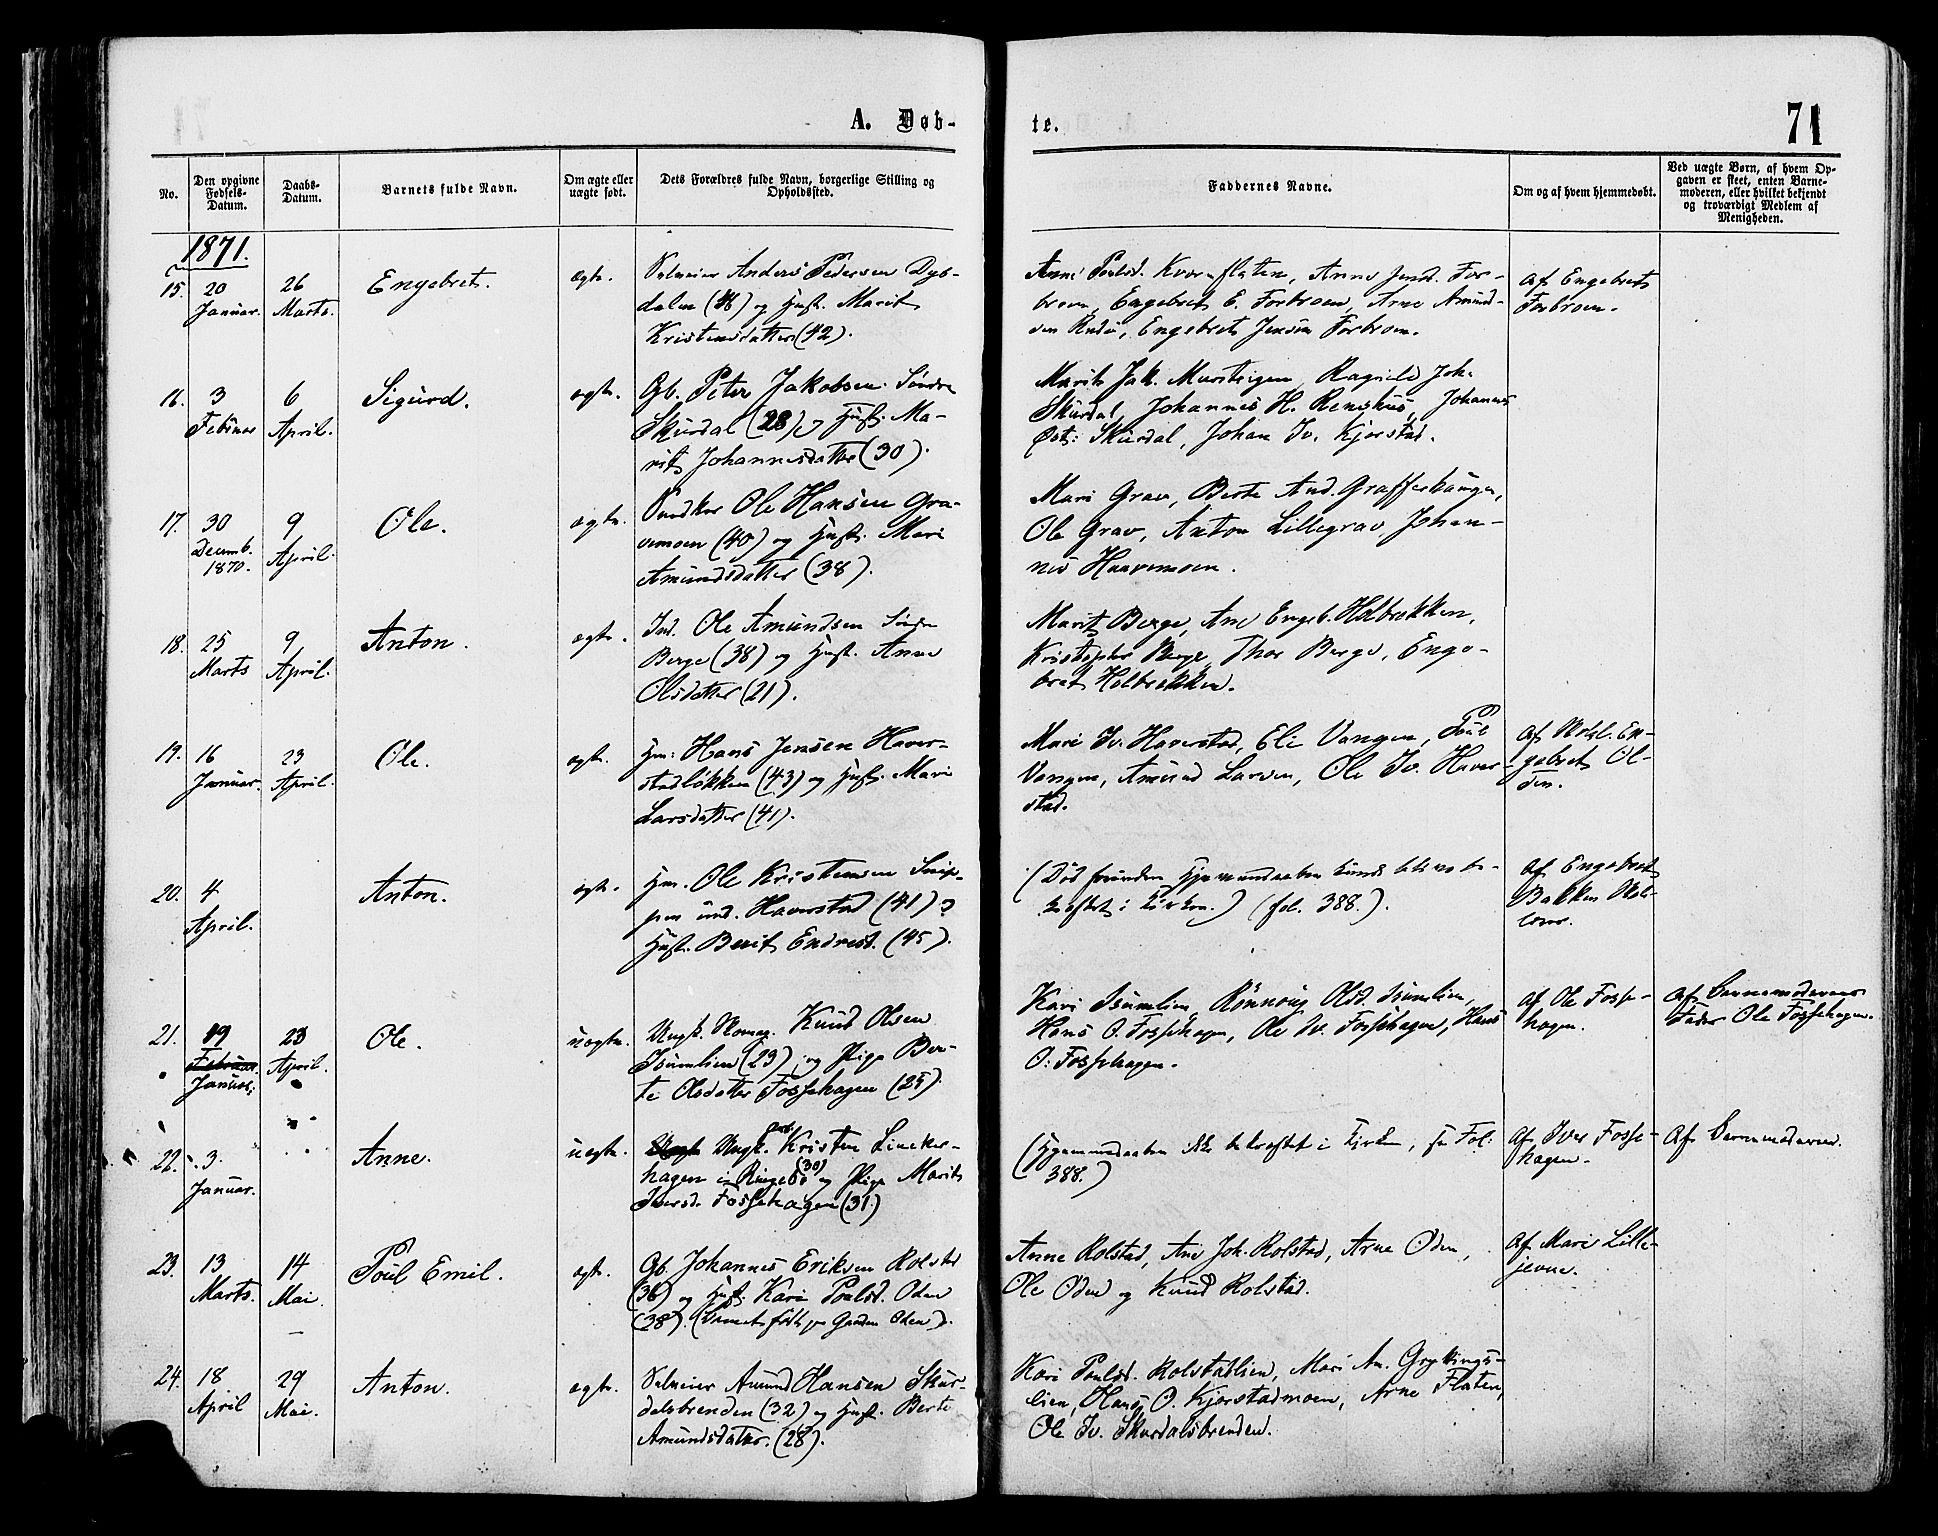 A. Døb-
te.
71
No.
Den opgivne
Fødsels-
Datum.
Daabs-
Datum.
Barnets fulde Navn.
Om ægte eller
uægte født.
Dets Forældres fulde Navn, borgerlige Stilling og
Opholdssted.
Faddernes Navne.
Om og af hvem hjemmedøbt.
Ved uægte Børn, af hvem Op-
gaven er skeet, enten Barne-
moderen, eller hvilket bekjendt
og troværdigt Medlem af
Menigheden.
1871.
15.
20
Januar.
26
Marts.
Engebret.
ægte.
Selveier Anders Pedersen Dyb-
dalen og Hust. Marit
Kristensdatter (42).
Kvernflaten, Anne Jensd. For-
broen, Engebret E. Forbroen, Arne Amund-
sen Engebret Jensen Forbroen.
af Engebret
Forbroen.
16.
3
Februar
6
April.
Sigurd.
ægte.
Gb. Peter Jakobsen Søndre
Skurdal (28) og Hust. Ma-
rit Johannesdatter (30).
Marit Jak. Ragnild Joh.
Skurdal, Johannes H. Johannes
Skurdal, Johan Iv. Kjorstad.
17.
30
Decemb.
1870.
9
April.
Ole.
ægte.
Ole Hansen Gra-
vemoen (40) og Hust. Mari
Amundsdatter (38).
Mari Grav, Berte And. Grafferhaugen,
Ole Grav, Anton Lillegrav, Johan-
nes Haavemoen.
18.
25
Marts
9
April.
Anton.
ægte.
Ind. Ole Amundsen Søndre
Berge (38) og Hust. Anne
Olsdatter (21).
Marit Berge, Ane Engeb. Holbrækken,
Kristopher Berge, Thor Berge, Enge-
bret Holbrækken.
19.
16
Januar.
23
April.
Ole.
ægte.
Hm. Hans Jensen Haver-
stadløkken (43) og Hust. Mari
Larsdatter (41).
Mari Iv. Haverstad, Eli Vangen, Poul
Vangen, Amund Larsen, Ole Iv. Haver-
stad.
af En-
gebret Ol-
den.
20.
4
April.
Anton.
ægte.
Hm. Ole Kristensen Snip-
pen und. Haverstad (41) og
Hust. Berit Endresd. (45).
(Død forinden Hjemmedaaben kunde blive be-
kræftet i Kirken.) (fol. 388.).
af Engebret
Bakken
21.
19
Februar.
Januar.
23
April.
Ole.
uægte.
Ungk. Knud Olsen
Isumlien (23) og Pige Ber-
te Olsdatter Fossehagen (25).
Kari Isumlien, Rønnoug Olsd. Isumlien,
Hans O. Fossehagen, Ole Iv. Fossehagen, Hans
O. Fossehagen.
af Ole Fosse-
hagen.
af Barnemoderens
Fader Ole Fossehagen.
22.
3
Januar.
Anne.
uægte.
Ungk. Kristen
hagen i Ringebo (30) og Pige Marit
Iversd. Fossehagen (31)
(Hjemmedaaben ikke bekræftet i Kirken, se Fol.
388.)
af Iver Fosse-
hagen.
af Barnemoderen.
23.
13
Marts.
14
Mai.
Poul Emil.
ægte.
Gb. Johannes Eriksen Rolstad
(36) og Hust. Kari Poulsd. Oden
(38). (Barnet født paa Gaarden Oden).
Anne Rolstad, Ane Joh. Rolstad, Arne Oden,
Ole Oden og Knud Rolstad.
af Mari Lille-
jevne.
24.
18
April
29
Mai.
Anton.
ægte.
Selveier Amund Hansen Skur-
dalsbrenden (32) og Hust. Berte
Amundsdatter. (28).
Kari Poulsd. Rolstadlien, Mari Am. Gryttings-
lien, Hans O. Kjorstadmoen, Arne Flaten,
Ole Iv. Skurdalsbrenden.